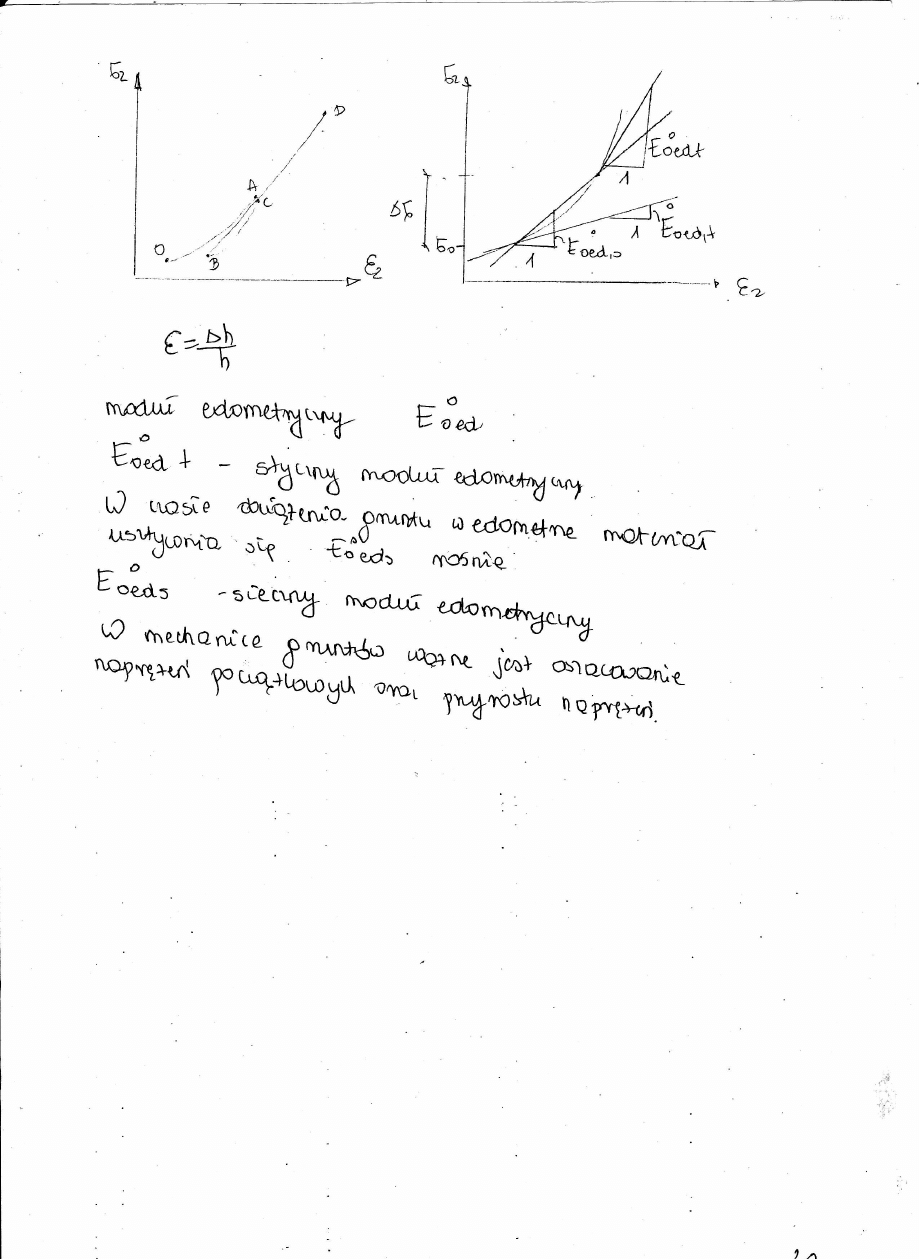 σz
D
A
C
O
B
εz
σz
E°oedt
1
Δσ
E°oed,t
1
σ0
E°oed,s
1
εz
ε=Δh/h
moduł edometryczny E°oed
E°oed t - styczny moduł edometryczny
W czasie obciążenia gruntu w edometrze materiał
usztywnia się E°oeds rośnie
E°oeds - sieczny moduł edometryczny
W mechanice gruntów ważne jest oszacowanie
naprężeń początkowych oraz przyrostu naprężeń.